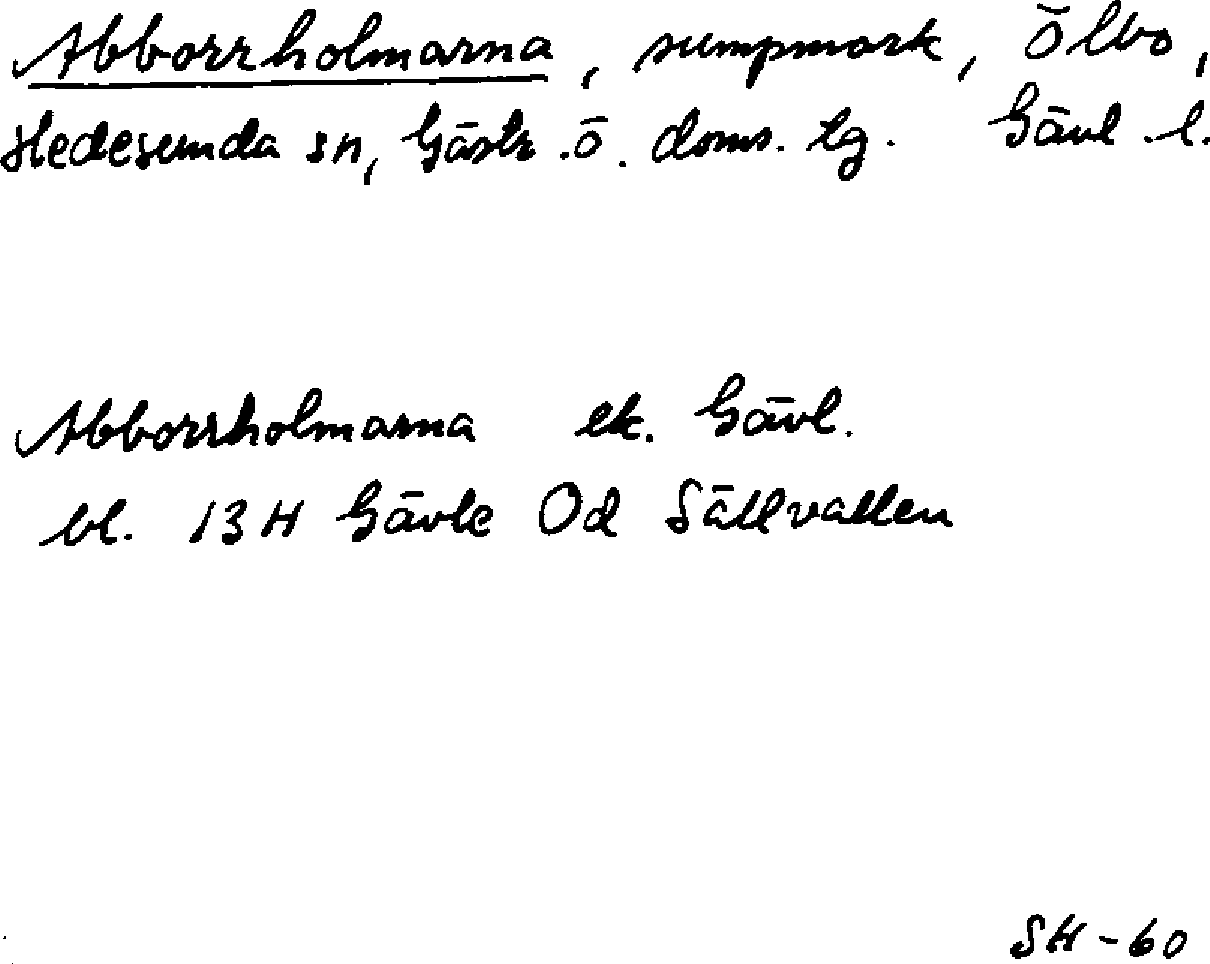 Abborrholmarna, sumpmark, Ölbo,
Hedesunda sn, Gästr. ö. doms. tg. Gävl. l.
Abborrholmarna ek. Gävl.
bl. 13H Gävle 0d Sällvallen
SH-60